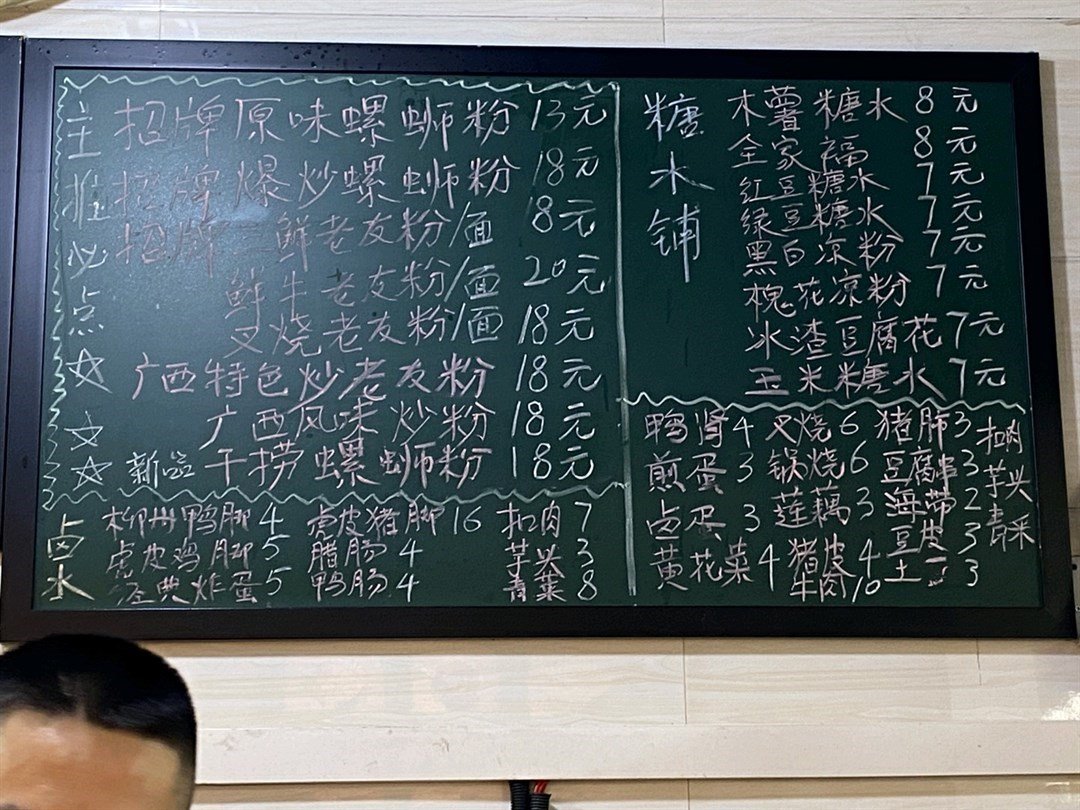 主推必点
招牌原味螺蛳粉 13元
招牌爆炒螺蛳粉 18元
招牌三鲜老友粉/面 18元
鲜牛老友粉/面 20元
叉烧老友粉/面 18元
广西特色炒老友粉 18元
广西风味炒粉 18元
新品 干捞螺蛳粉 18元
糖水铺
木薯糖水 8元
全家福 8元
红豆糖水 7元
绿豆糖水 7元
黑白凉粉 7元
槐花凉粉 7元
冰渣豆腐花 7元
玉米糖水 7元
卤水
柳州鸭脚 4 虎皮猪脚 16 扣肉 7
虎皮鸡脚 5 腊肠 4 芋头 3
经典炸蛋 5 鸭肠 4 青菜 8
鸭肾 4 叉烧 6 猪肺 3
煎蛋 3 锅烧 6 豆腐串 3
卤蛋 3 莲藕 3 海带 2
黄花菜 4 猪皮 4 豆皮 3
牛肉 10 土 3
扣肉
芋头
青菜